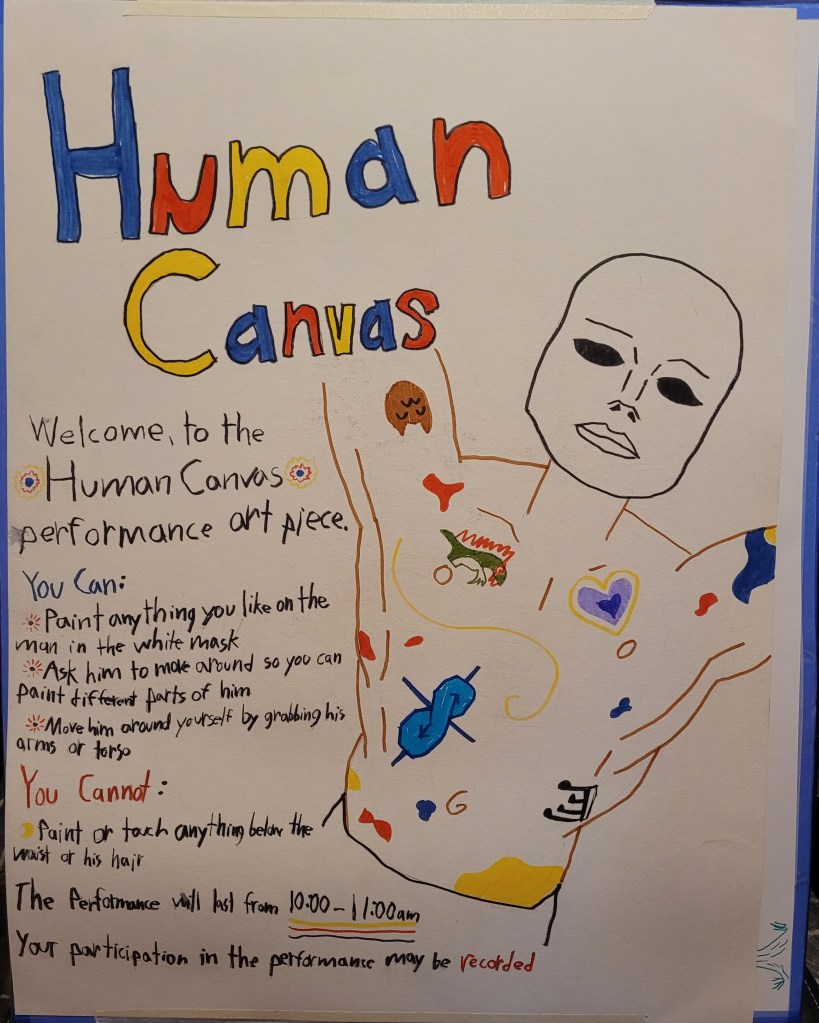 Human
Canvas
Welcome, to the
Human Canvas
performance art piece.
You Can:
Paint anything you like on the
man in the white mask
Ask him to move around so you can
paint different parts of him
Move him around yourself by grabbing his
arms or torso
You Cannot:
Paint or touch anything below the
waist or his hair
The Performance will last from 10:00-11:00am
Your participation in the performance may be recorded
G